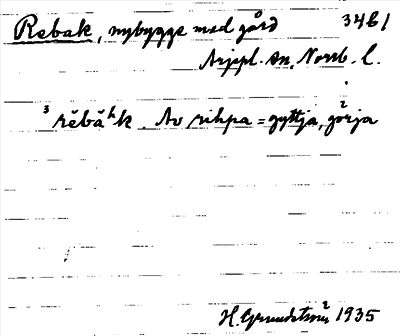 Rebak, nybygge med gård 3461
Arjepl. sn, Norrb. l.
³ rĕbăʰk. Av rihpa = gyttja, görja
H. Grundström 1935